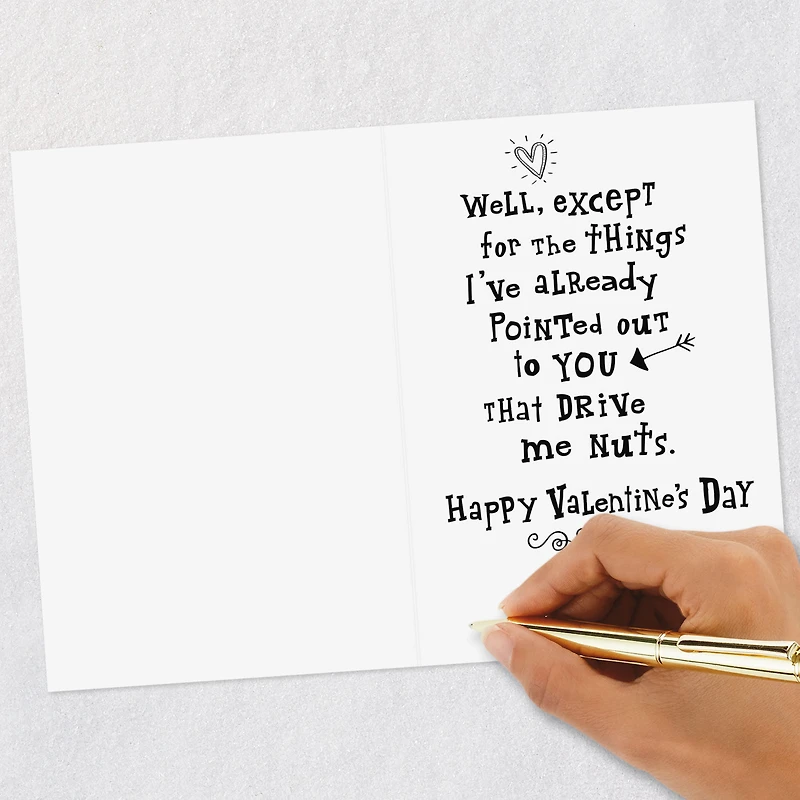 Well, except
for the things
I've already
pointed out
to YOU
that DRIVE
me nuts.
Happy Valentine's Day